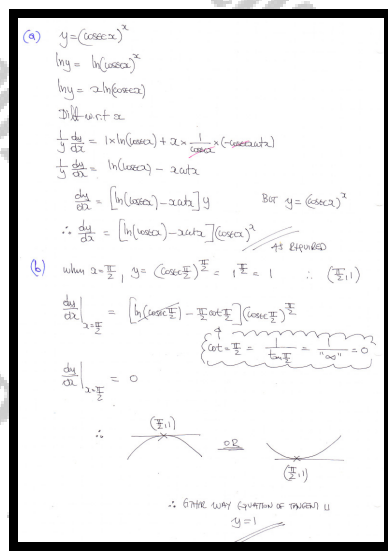 (a) y = (cosecx)^x
lny = ln(cosecx)^x
lny = xln(cosecx)
Diff w.r.t x
1/y dy/dx = 1×ln(cosecx) + x × 1/cosecx × (-cosecxcotx)
1/y dy/dx = ln(cosecx) - xcotx
dy/dx = [ln(cosecx) - xcotx] y BUT y = (cosecx)^x
∴ dy/dx = [ln(cosecx) - xcotx](cosecx)^x
AS REQUIRED
(b) when x = π/2, y = (cosec π/2)^(π/2) = 1^(π/2) = 1 ∴ (π/2, 1)
dy/dx |x=π/2 = [ln(cosec π/2) - π/2 cot π/2](cosec π/2)^(π/2)
cot = π/2 = 1/tan π/2 = 1/"∞" = 0
dy/dx |x=π/2 = 0
∴ (π/2, 1) OR (π/2, 1)
∴ EITHER WAY EQUATION OF TANGENT IS
y = 1